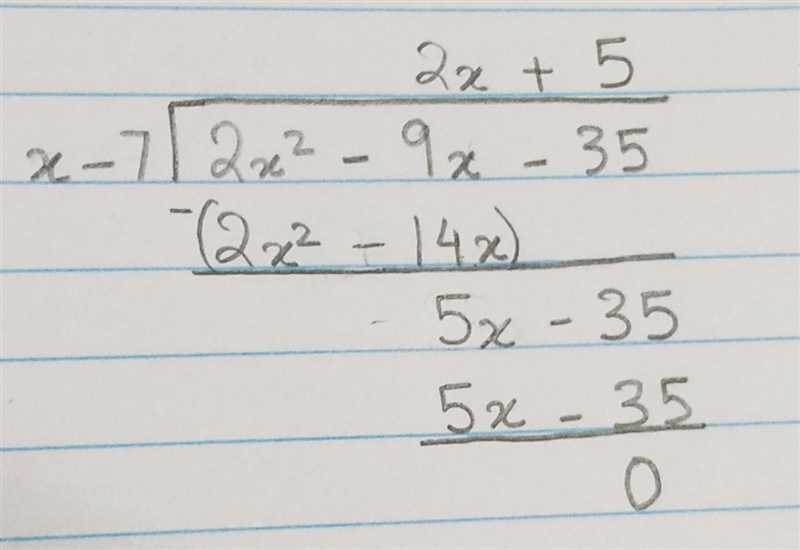 2x + 5
x - 7 2x² - 9x - 35
-(2x² - 14x)
5x - 35
5x - 35
0